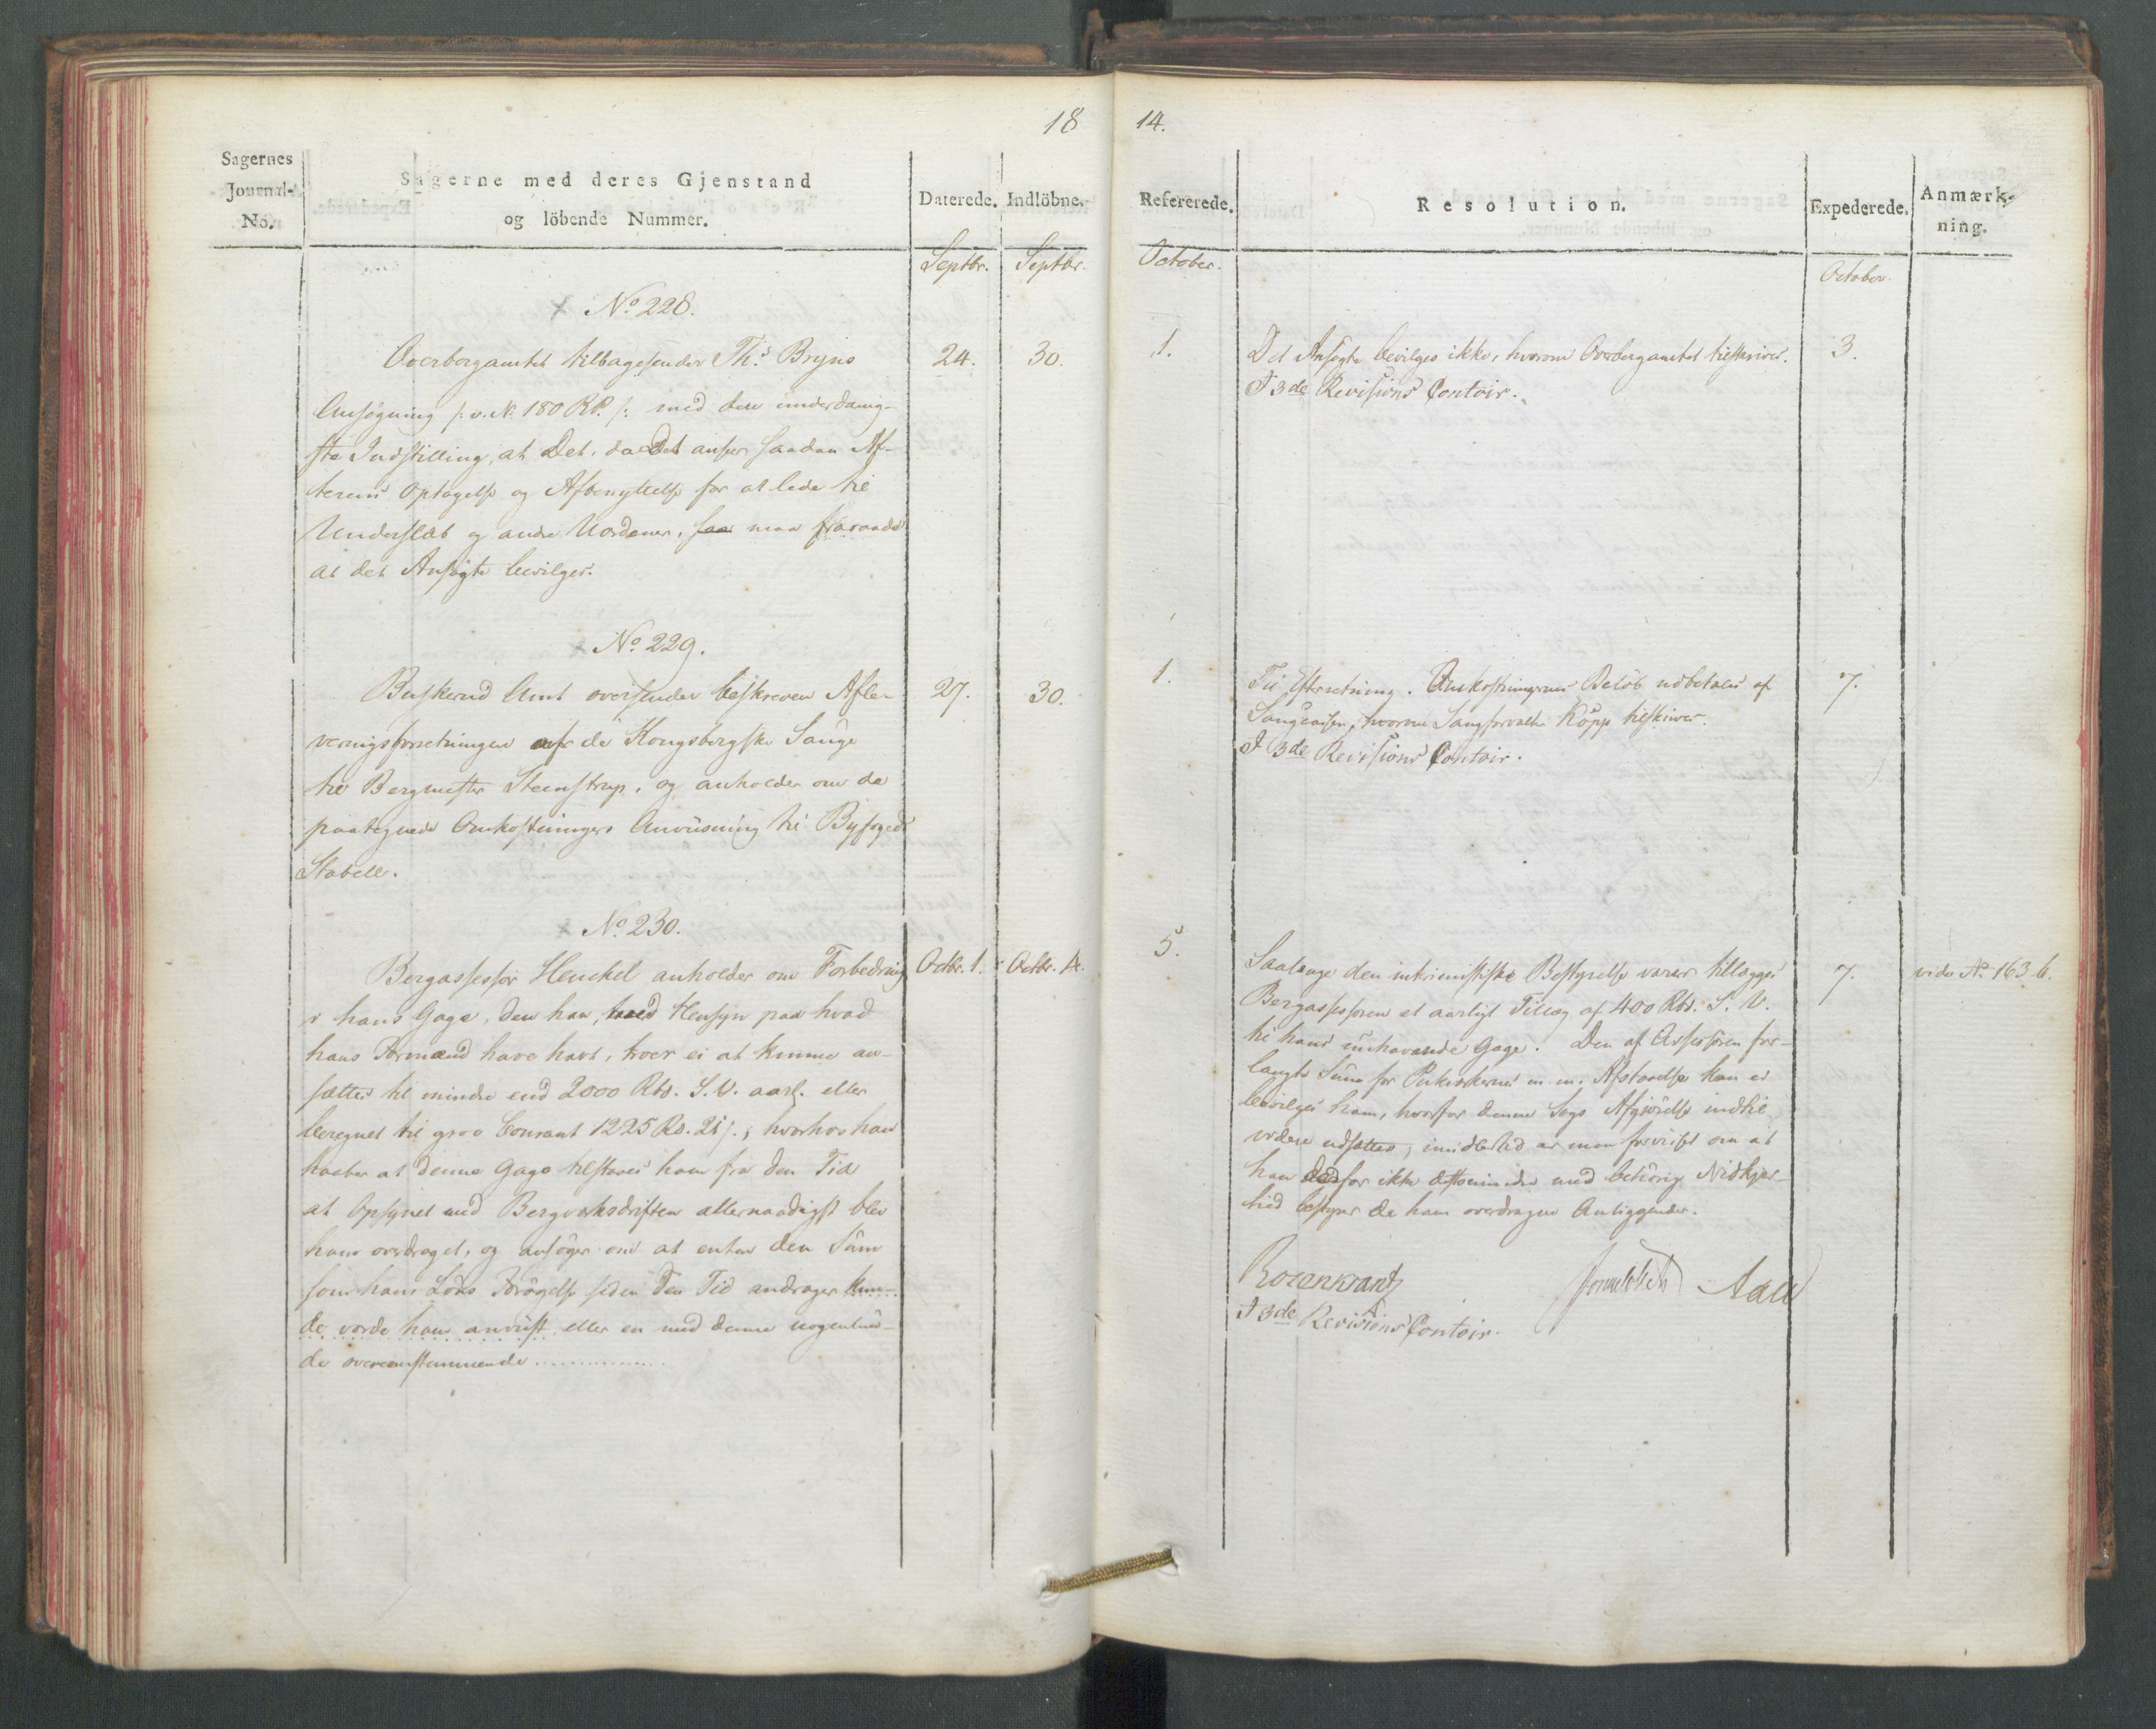 18
Sagernes
Journal-
No.
Sagerne med deres Gjenstand
og löbende Nummer.
Daterede.
Indlöbne.
Septbr.
Septbr.
No 228.
Overbergamtet tilbagesender Ths Bryns
24.
30.
Ansøgning /: v. No 180 RP. :/ med den underdanig-
ste Indstilling, at Det, da Det anser saadan Af-
terens Optagelse og Afbenyttelse for at lede til
Underslæb og andre Uordener, saa maa fraraade
at det Ansøgte bevilges.
No 229.
Buskerud Amt oversender beskreven Afle-
27.
30.
veringsforretningen af de Kongsbergske Sauge
til Bergmester Steenstrup, og anholder om de
paategnede Omkostningers Anviisning til Byfoged
Stabell.
No 230.
Bergassessor Henckel anholder om Forbedring
Octbr. 1.
Octbr. 4.
i hans Gage, den han, med Hensyn paa hvad
hans Formænd have havt, troer ei at kunne an-
sættes til mindre end 2000 Rbd. S.V. aarl. eller
beregnet til grov Courant 1225 Rd. 21 s.; hvorhos han
haaber at denne Gage tilstaaes ham fra den Tid
at Opsynet med Bergverksdriften allernaadigst blev
ham overdraget, og ansøger om at enten den Sum
som hans Löns Forøgelse siden den Tid andrager kun-
de vorde ham anviist, eller en med denne nogenlun-
de overeenstemmende ................
14.
Refererede.
Resolution.
Expederede.
Anmærk-
ning.
October.
October.
1.
Det Ansøgte bevilges ikke, hvorom Overbergamtet tilskrives.
3.
I 3de Revisions Contoir.
1.
Til Efterretning. Omkostningernes Beløb udbetales af
7.
Saugcassen, hvorom Saugforvalter Köpp tilskrives.
I 3de Revisions Contoir.
5.
Saalænge den interimistiske Bestyrelse varer tillægges
7.
vide No 163 b.
Bergassessoren et aarligt Tillæg af 400 Rbd. S.V.
til hans iinehavende Gage. Den af Assessoren for-
langte Sum for Pukverkernes m.m. Afstaaelse kan ei
bevilges ham, hvorfor denne Sags Afgjörelse indtil
videre udsættes, imidlertid er man forvisset om at
han derfor ikke destomindre med behörig Nidkjær-
hed bestyrer de ham overdragne Anliggender.
Rosenkrantz
Sommelhielm
Aall
I 3de Revisions Contoir.